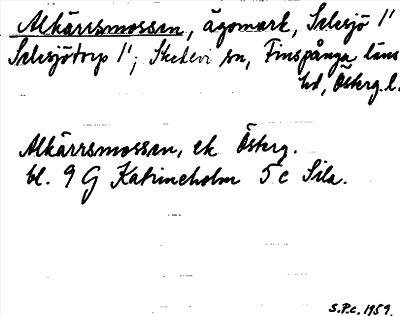 Alkärrsmossen, ägomark, Selesjö 1'
Selesjötorp 1'; Skedevi sn, Finspånga läns
hd, Österg. l.
Alkärrsmossen, ek Österg.
bl. 9 G Katrineholm 5 c Sila.
S.P.c. 1959.